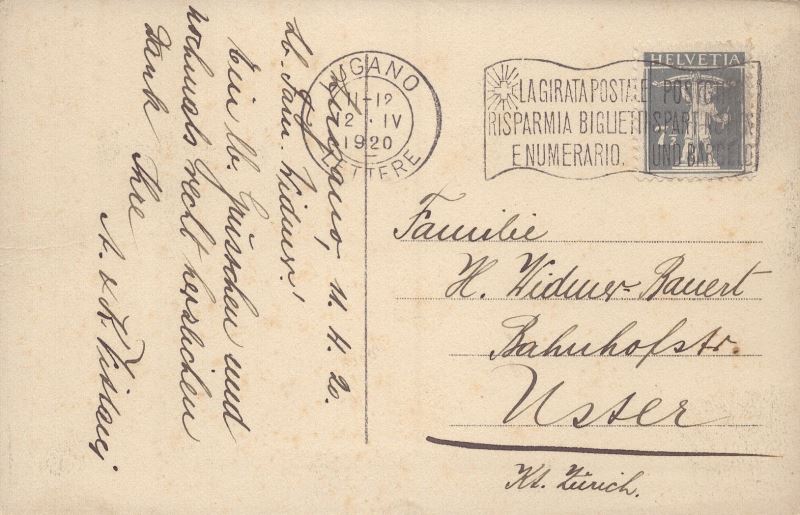 Lugano, 11. 4. 20.
Lb. Fam. Widmer!
Ein lb. Grüsschen und
nochmals recht herzlichen
Dank Ihre
A. & K.
LUGANO
11-12
12. IV
1920
LETTERE
LA GIRATA POSTALE
RISPARMIA BIGLIETTI
E NUMERARIO.
POSTCH
SPART NOTEN
UND BARGELD
HELVETIA
7½
Familie
H. Widmer-Bauert
Bahnhofstr.
Uster
Kt. Zürich.